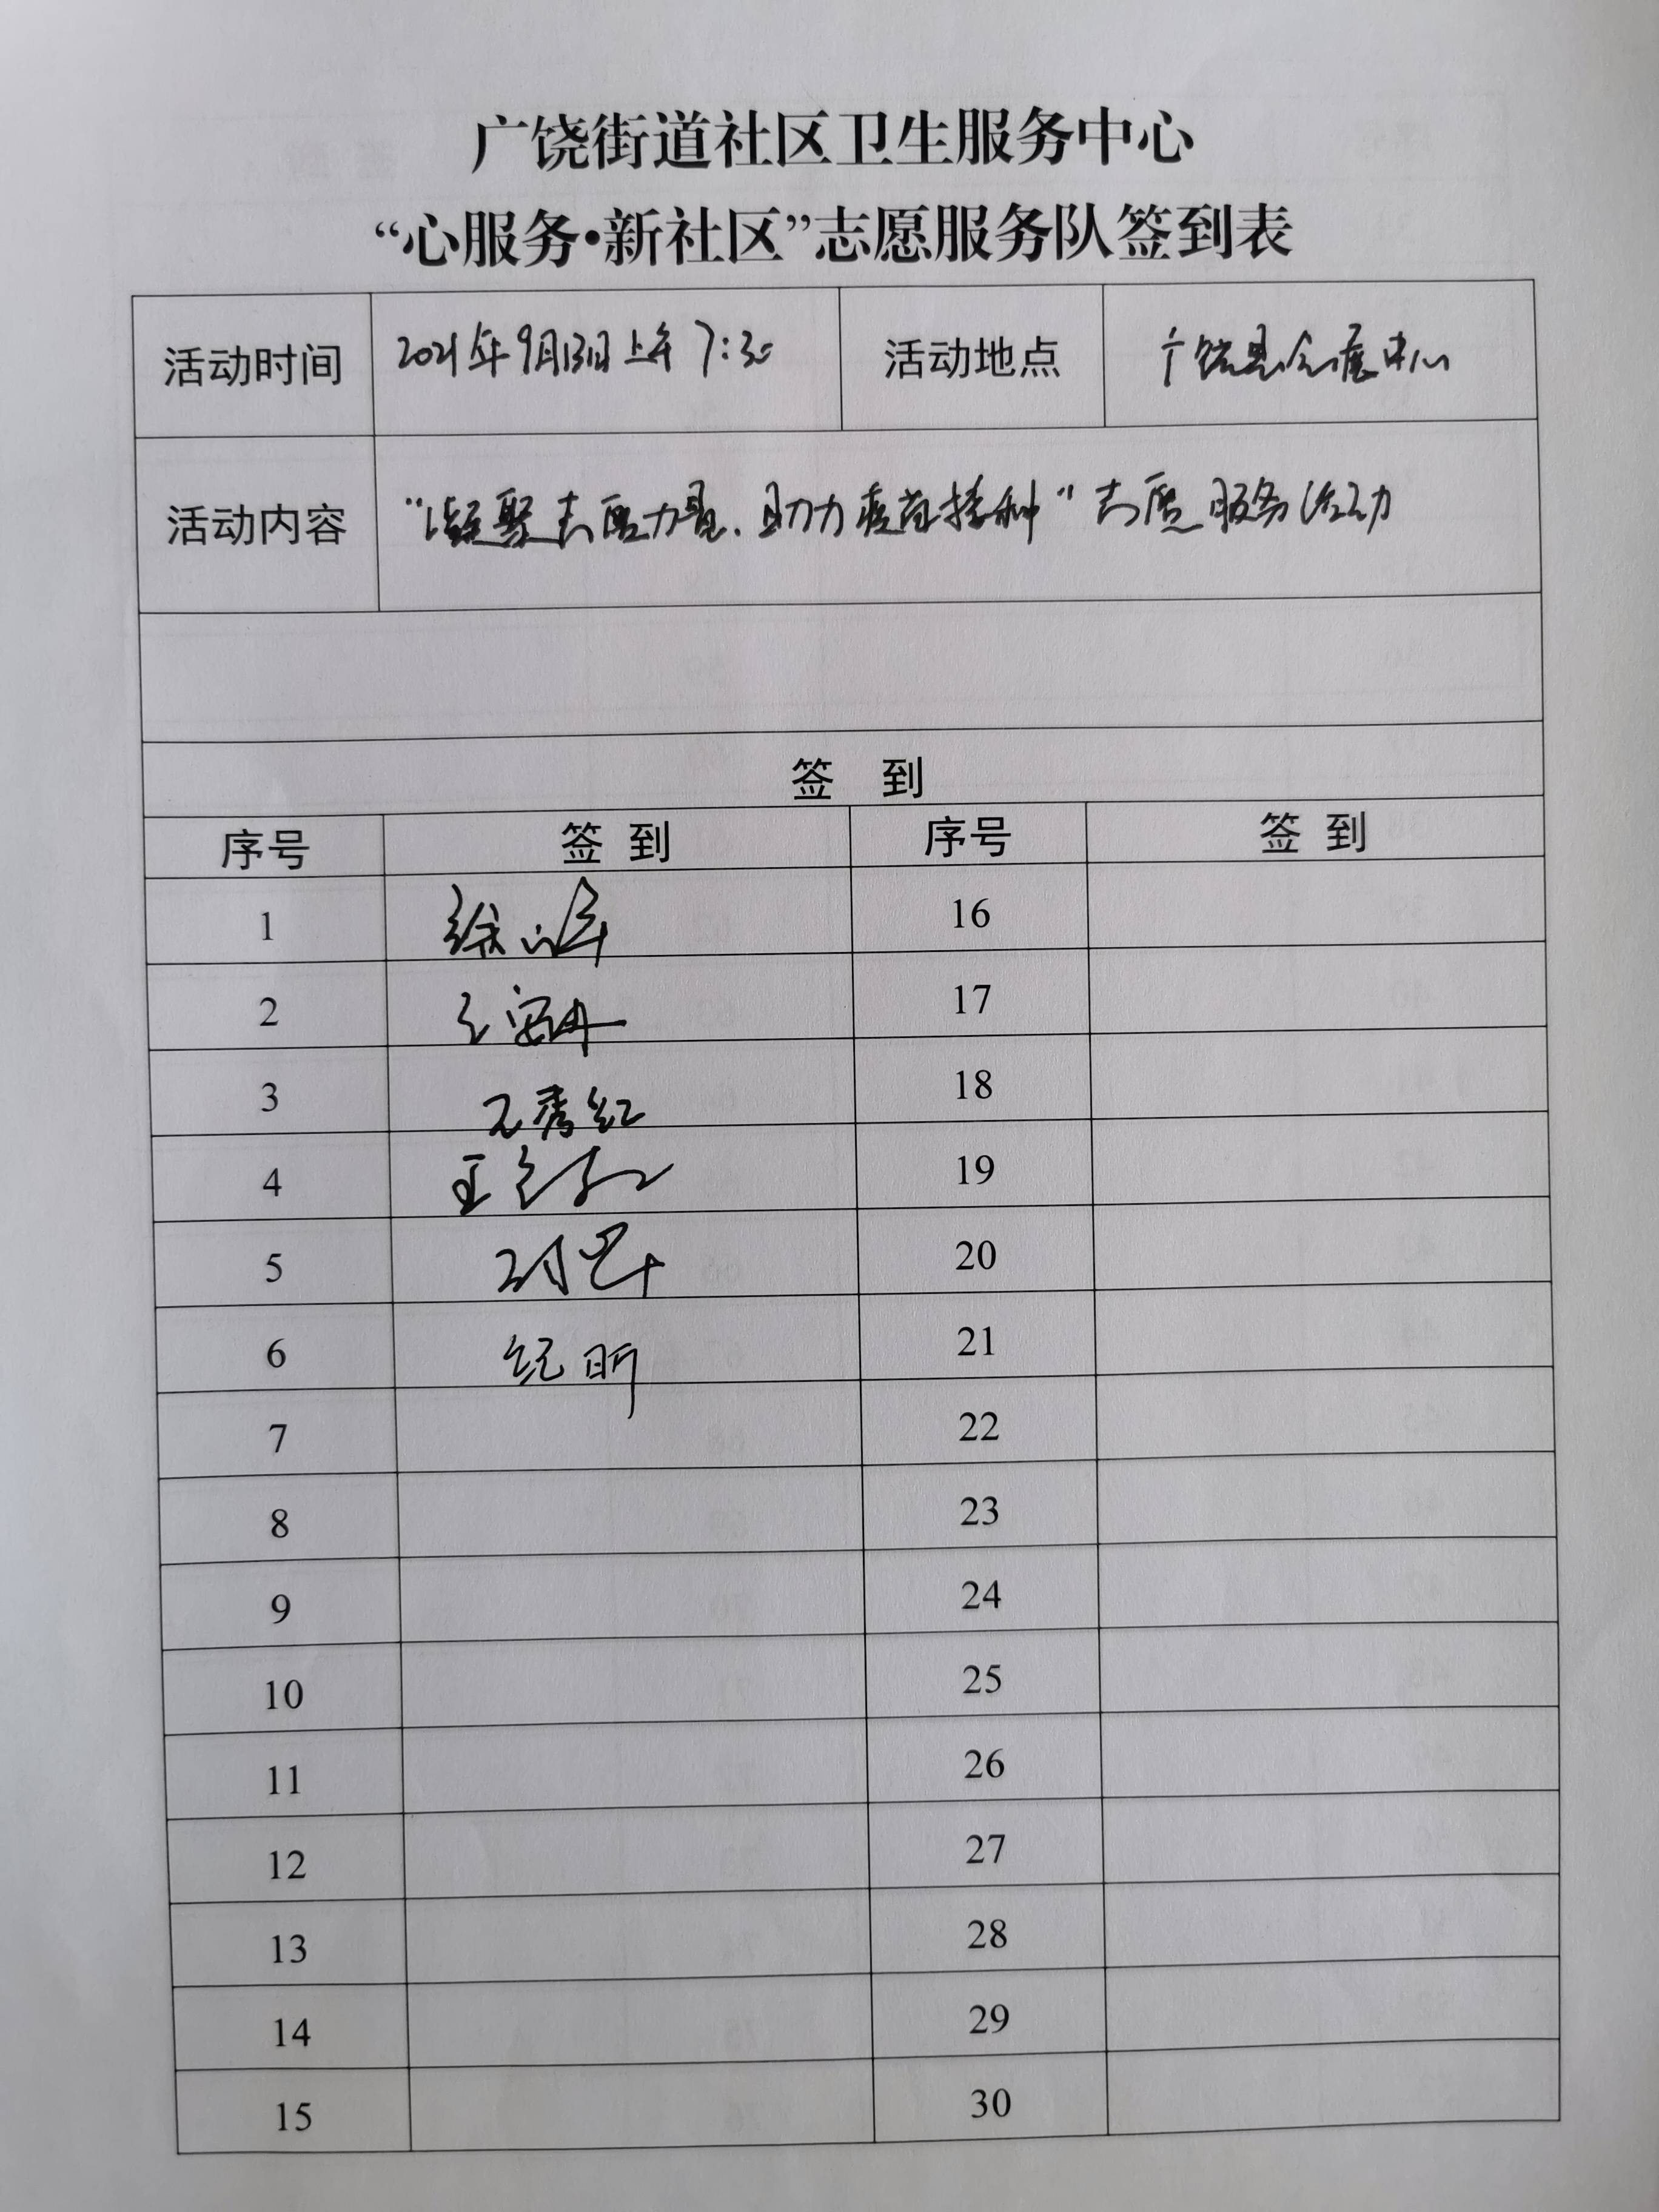 广饶街道社区卫生服务中心
“心服务•新社区”志愿服务队签到表
活动时间 2021年9月13日上午7:30 活动地点 广饶县会展中心
活动内容 “凝聚志愿力量、助力疫苗接种”志愿服务活动
签 到
序号 签 到 序号 签 到
1 16
2 17
3 秀红 18
4 王 19
5 刘 20
6 纪昕 21
7 22
8 23
9 24
10 25
11 26
12 27
13 28
14 29
15 30